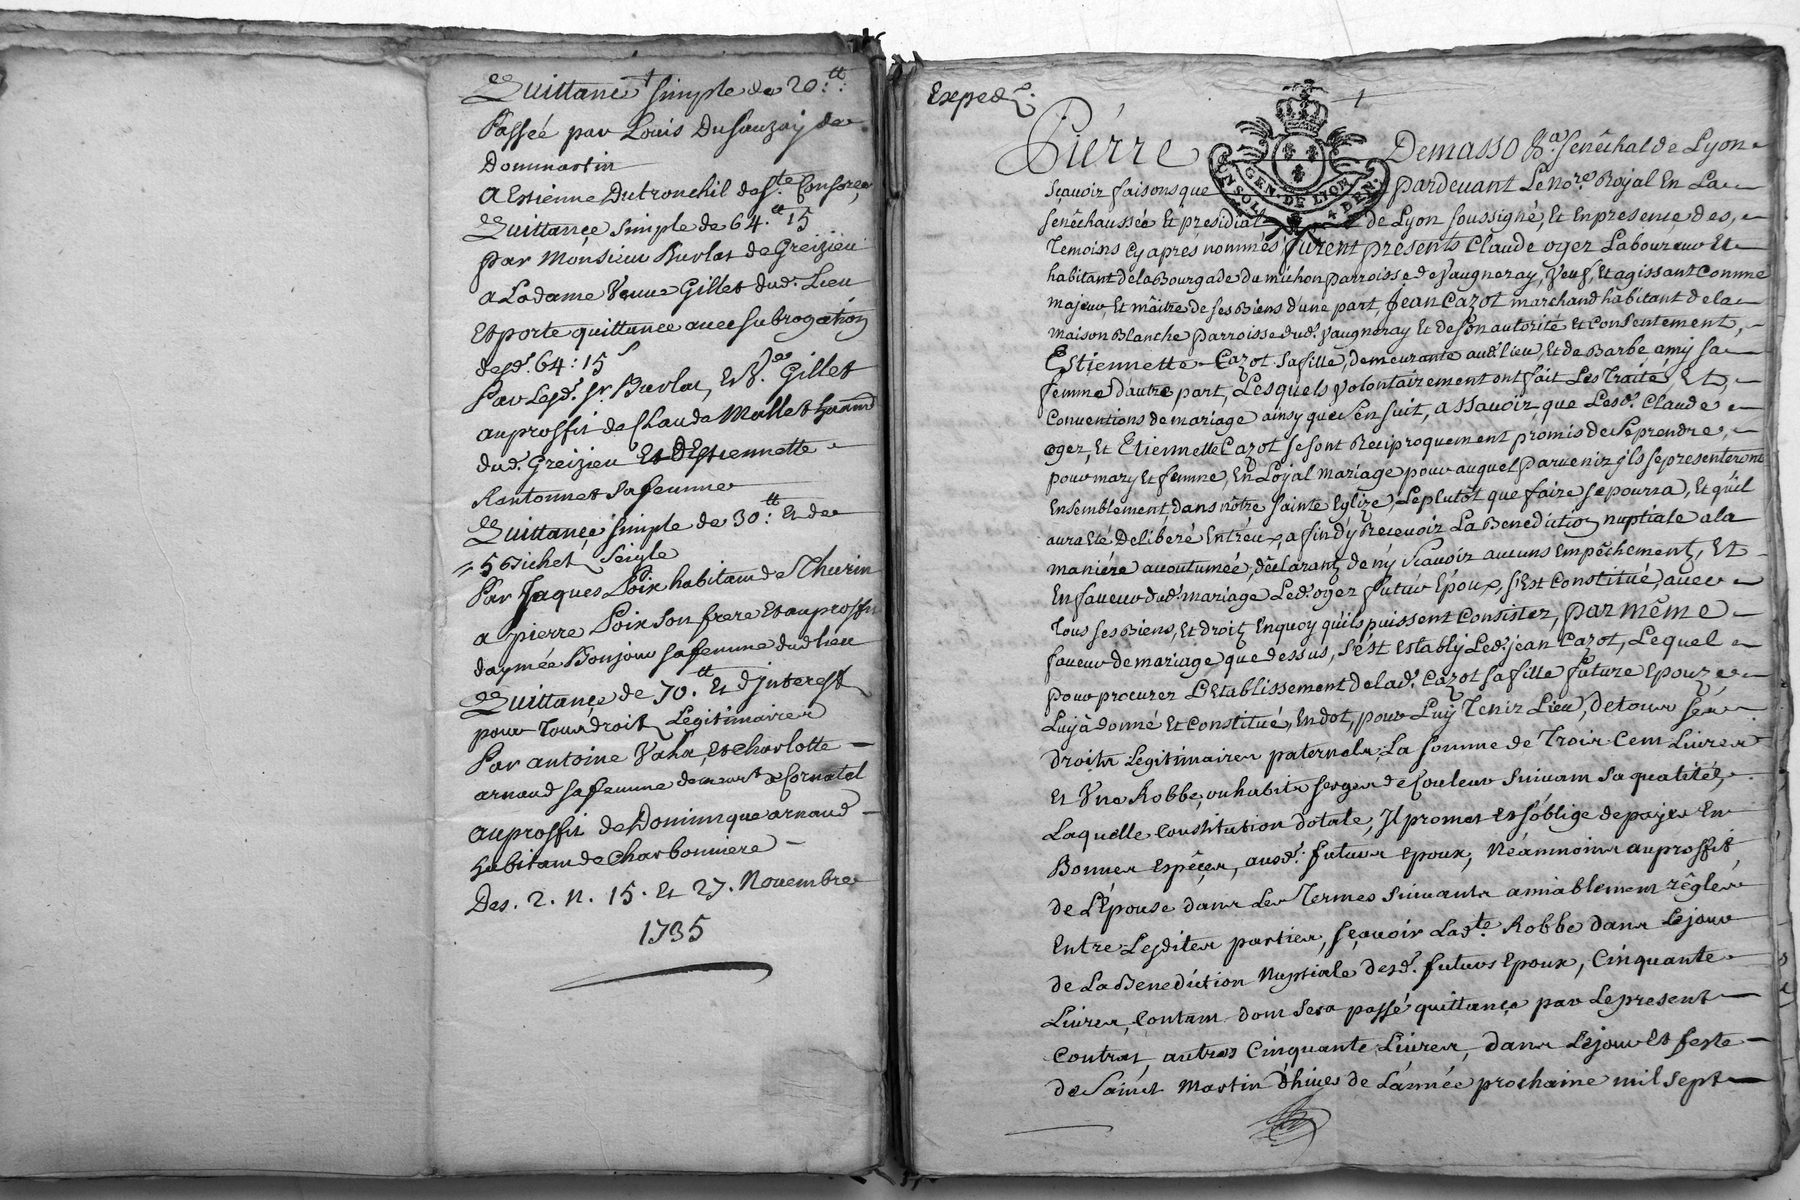 Quittance simple de 20.tt
Passée par Louis Dusauzay de
Dommartin
A Estienne Dutronchil de Ste Consorce
Quittance simple de 64.tt 15
par Monsieur Burlat de Greizieu
a Ladame Veuve Gillet dud. Lieu
Et porte quittance avec subrogation
desd. 64 : 15s
Par Lesd. Sr. Burlat, Et Ve. Gillet
au proffit de Claude Mollet
dud. Greizieu Et dEstiennette
sa femme
Quittance simple de 30.tt Et de
5 Bichet Seigle
Par Jaques Poix habitant de Thurin
a pierre Poix son frere Et au proffit
daymée Bonjour sa femme dud lieu
Quittance de 70.tt Et djnterest
pour Tous droit Légitimaires
Par antoine Et Charlotte
arnaud sa femme demeurt a Cornatel
au proffit de Dominique arnaud
habitant de Charbonniere
Des. 2. 11. 15. Et 27. Novembre
1735
Exped.
1
GEN. DE LYON
UN SOL 4 DEN.
Pierre Demasso Sénéchal de Lyon
Sçavoir faisons que pardevant Le No.re Royal En La
sénéchaussée Et présidial de Lyon soussigné, Et En presence des
Temoins Cy apres nommés furent présents Claude ogez Laboureur Et
habitant de la Bourgade du michon Parroisse de Vaugneray, Veuf, Et agissant Comme
majeur Et maitre de ses Biens d'une part, Jean Cazot marchand habitant de la
maison Blanche Parroisse dud. Vaugneray Et de son autorité Et Consentement,
Estiennette Cazot sa fille, demeurante audit lieu, Et de Barbe amy sa
femme d'autre part, Lesquels volontairement ont fait Les Traité, Et,
Conventions de mariage ainsy que s'en suit, assavoir que Lesd. Claude
ogez, Et Etiennette Cazot se sont Reciproquement promis de se prendre,
pour mary Et femme, En Loyal mariage pour auquel Parvenir jls se presenteront
Ensemblement, dans nôtre sainte Eglize, Le plutôt que faire se pourra, Et qu'il
aura Eté Deliberé Entr'eux, afin d'y Recevoir La Benediction nuptiale a la
maniére accoutumée, déclarant de n'y sçavoir aucuns Empêchement, Et
En faveur dud. mariage Led. ogez futur Epoux, s'Est Constitué, avec
Tous ses Biens, Et droit En quoy qu'ils puissent Consister, par même
faveur de mariage que dessus, s'est Estably Led. jean Cazot, Lequel
pour procurer L'Etablissement de lad. Cazot sa fille future Epouze
Luy a donné Et Constitué, En dot, pour Luy Tenir Lieu, de tous ses
droits Légitimaires paternels, La somme de Trois Cent Livres
Et Une Robbe, ou habits serges de Couleur suivant sa qualité,
Laquelle Constitution dotale, Il promet Et s'oblige de payer En
Bonnes Espéces, ausd. futurs Epoux, Néanmoins au proffit
de L'Epouse dans Les Termes suivants amiablement réglés
Entre Lesdites parties, sçavoir Lad.te Robbe dans Le jour
de La Benediction Nuptiale desd. futurs Epoux, Cinquante
Livres, Contant dont sera passé quittance par Le present
Contrat, autres Cinquante Livres, dans Le jour Et feste
de Saint Martin d'hiver de L'année prochaine mil sept